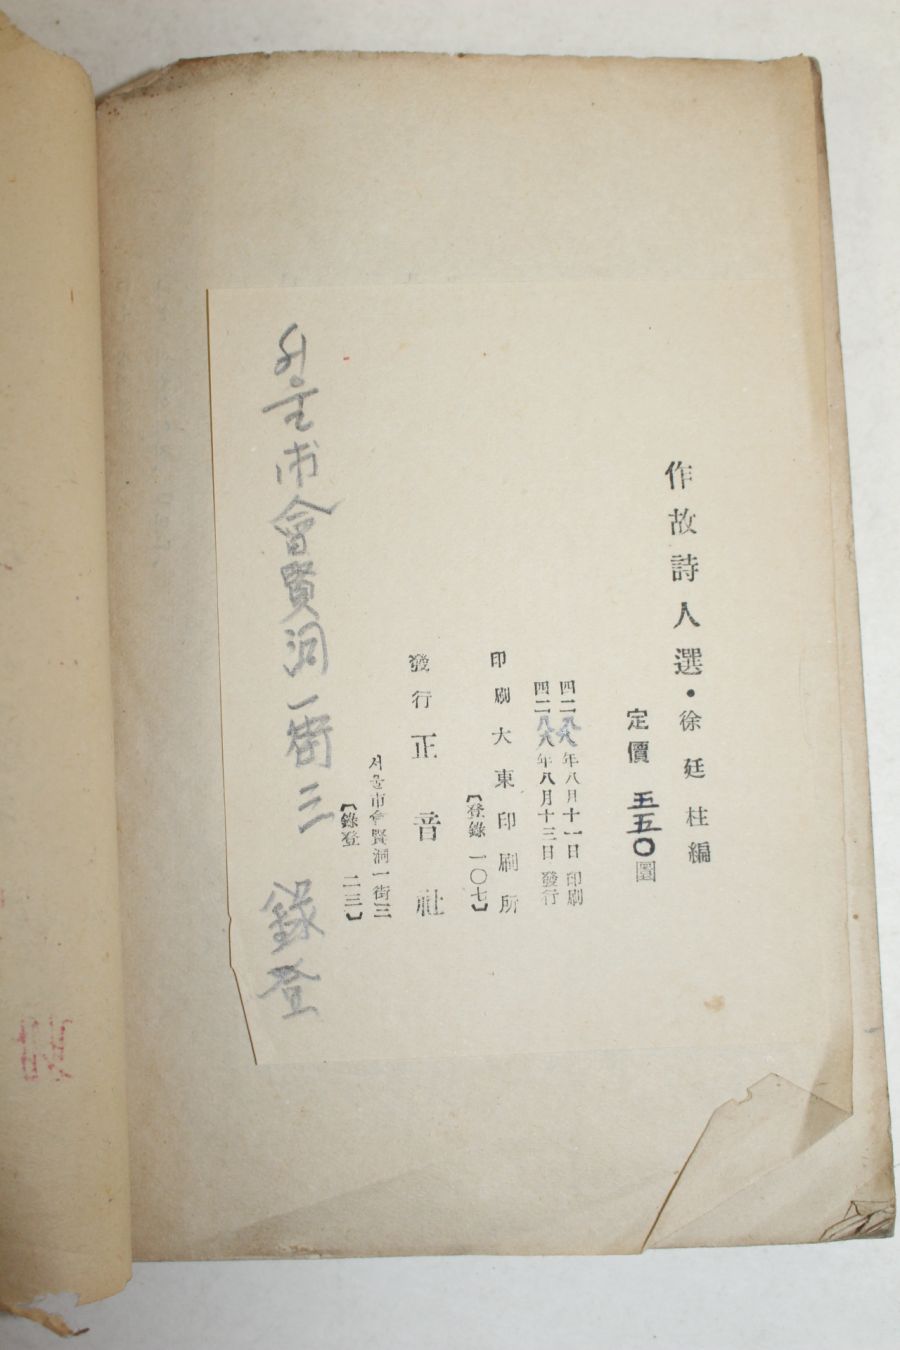 作故詩人選・徐廷柱編
定價 五五〇圜
四二八八年八月十一日 印刷
四二八八年八月十三日 發行
印刷 大東印刷所
【登錄 一〇七】
發行 正音社
서울市會賢洞一街三
【錄登 二三】
서울市會賢洞一街三 錄登